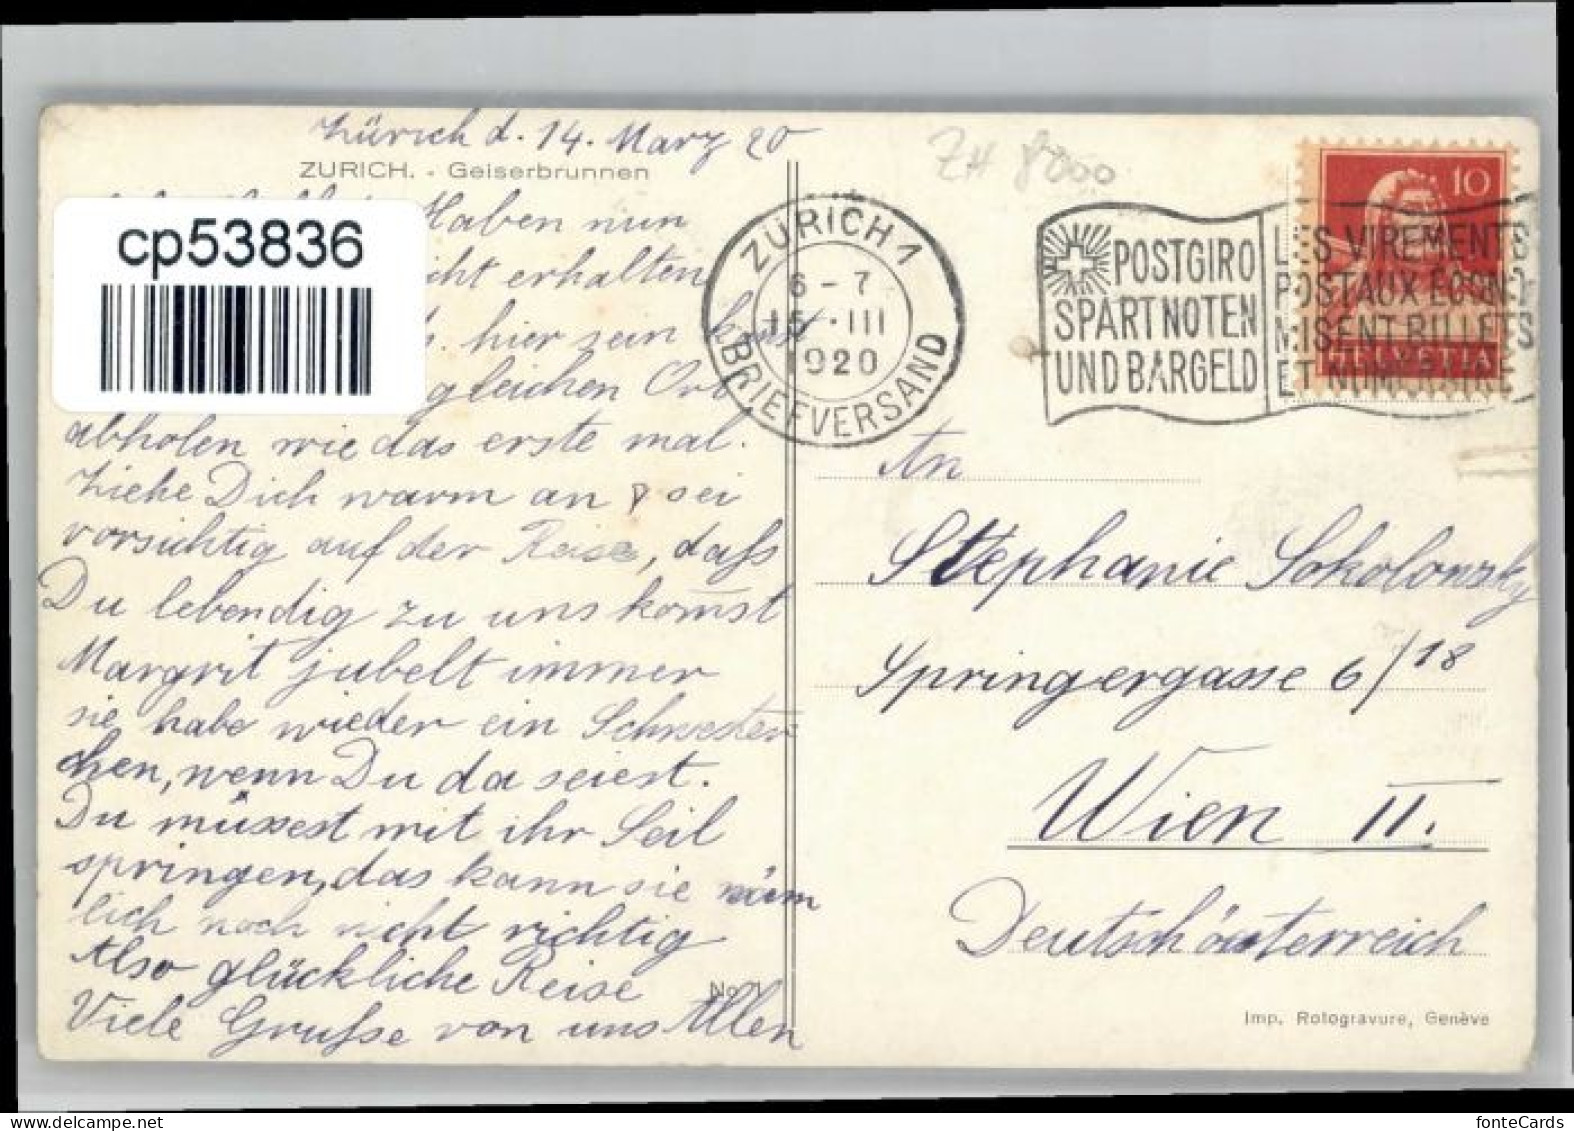 Zürich d. 14. März 20
ZURICH. - Geiserbrunnen
Haben nun
cp53836
erhalten
hier sein
gleichen Ort
abholen wie das erste mal.
Ziehe Dich warm an & sei
vorsichtig auf der Reise, dafs
Du lebendig zu uns kom̄st
Margrit jubelt immer
sie habe wieder ein Schwester
chen, wenn Du da seiest.
Du müssest mit ihr Seil
springen, das kann sie näm
lich noch nicht richtig
Also glückliche Reise
Viele Grüfse von uns Allen
No. 1
ZH 8000
ZÜRICH 1
6-7
15·III
1920
BRIEFVERSAND
POSTGIRO
SPART NOTEN
UND BARGELD
LES VIREMENTS
POSTAUX ÉCONO
MISENT BILLETS
ET NUMÉRAIRE
10
HELVETIA
An
Stephanie Sokolonsky
Springergasse 6/18
Wien II.
Deutschösterreich
Imp. Rotogravure, Genève
fonteCards